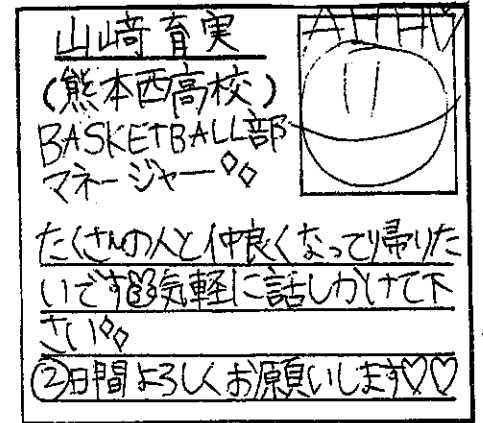 山﨑育実
(熊本西高校)
BASKETBALL部
マネージャー◇◇
たくさんの人と仲良くなって帰りた
いです 気軽に話しかけて下
さい◇◇
②日間よろしくお願いします♡♡